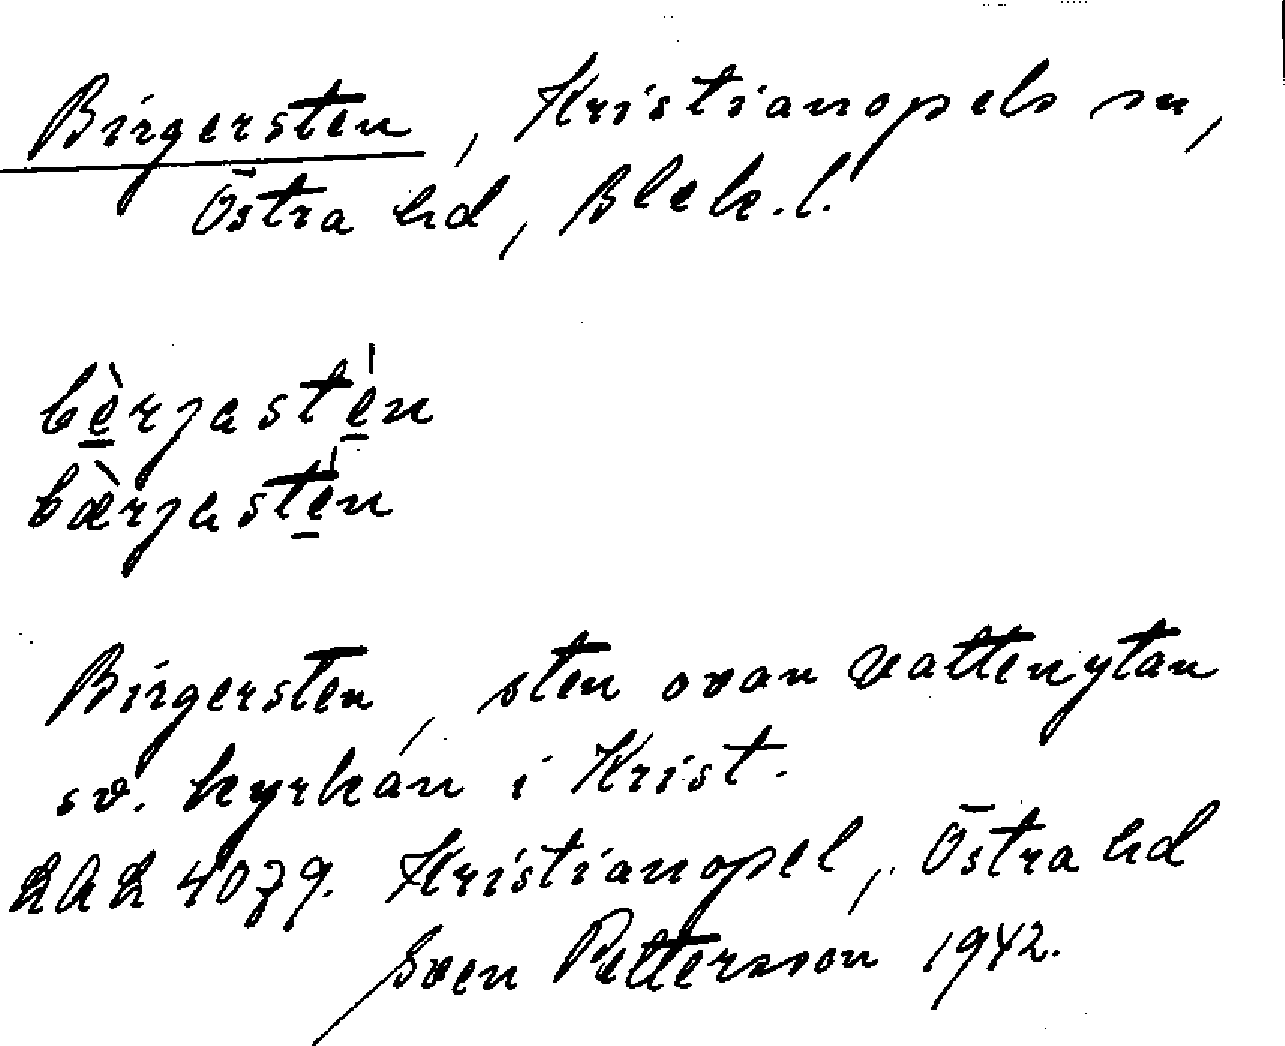 Birgersten, Kristianopels sn,
Östra hd, Blek. l.
bèrjastén
bærjastén
Birgersten, sten ovan vattenytan
sv. kyrkan i Krist.
LAL 4079. Kristianopel, Östra hd
Sven Pettersson 1942.